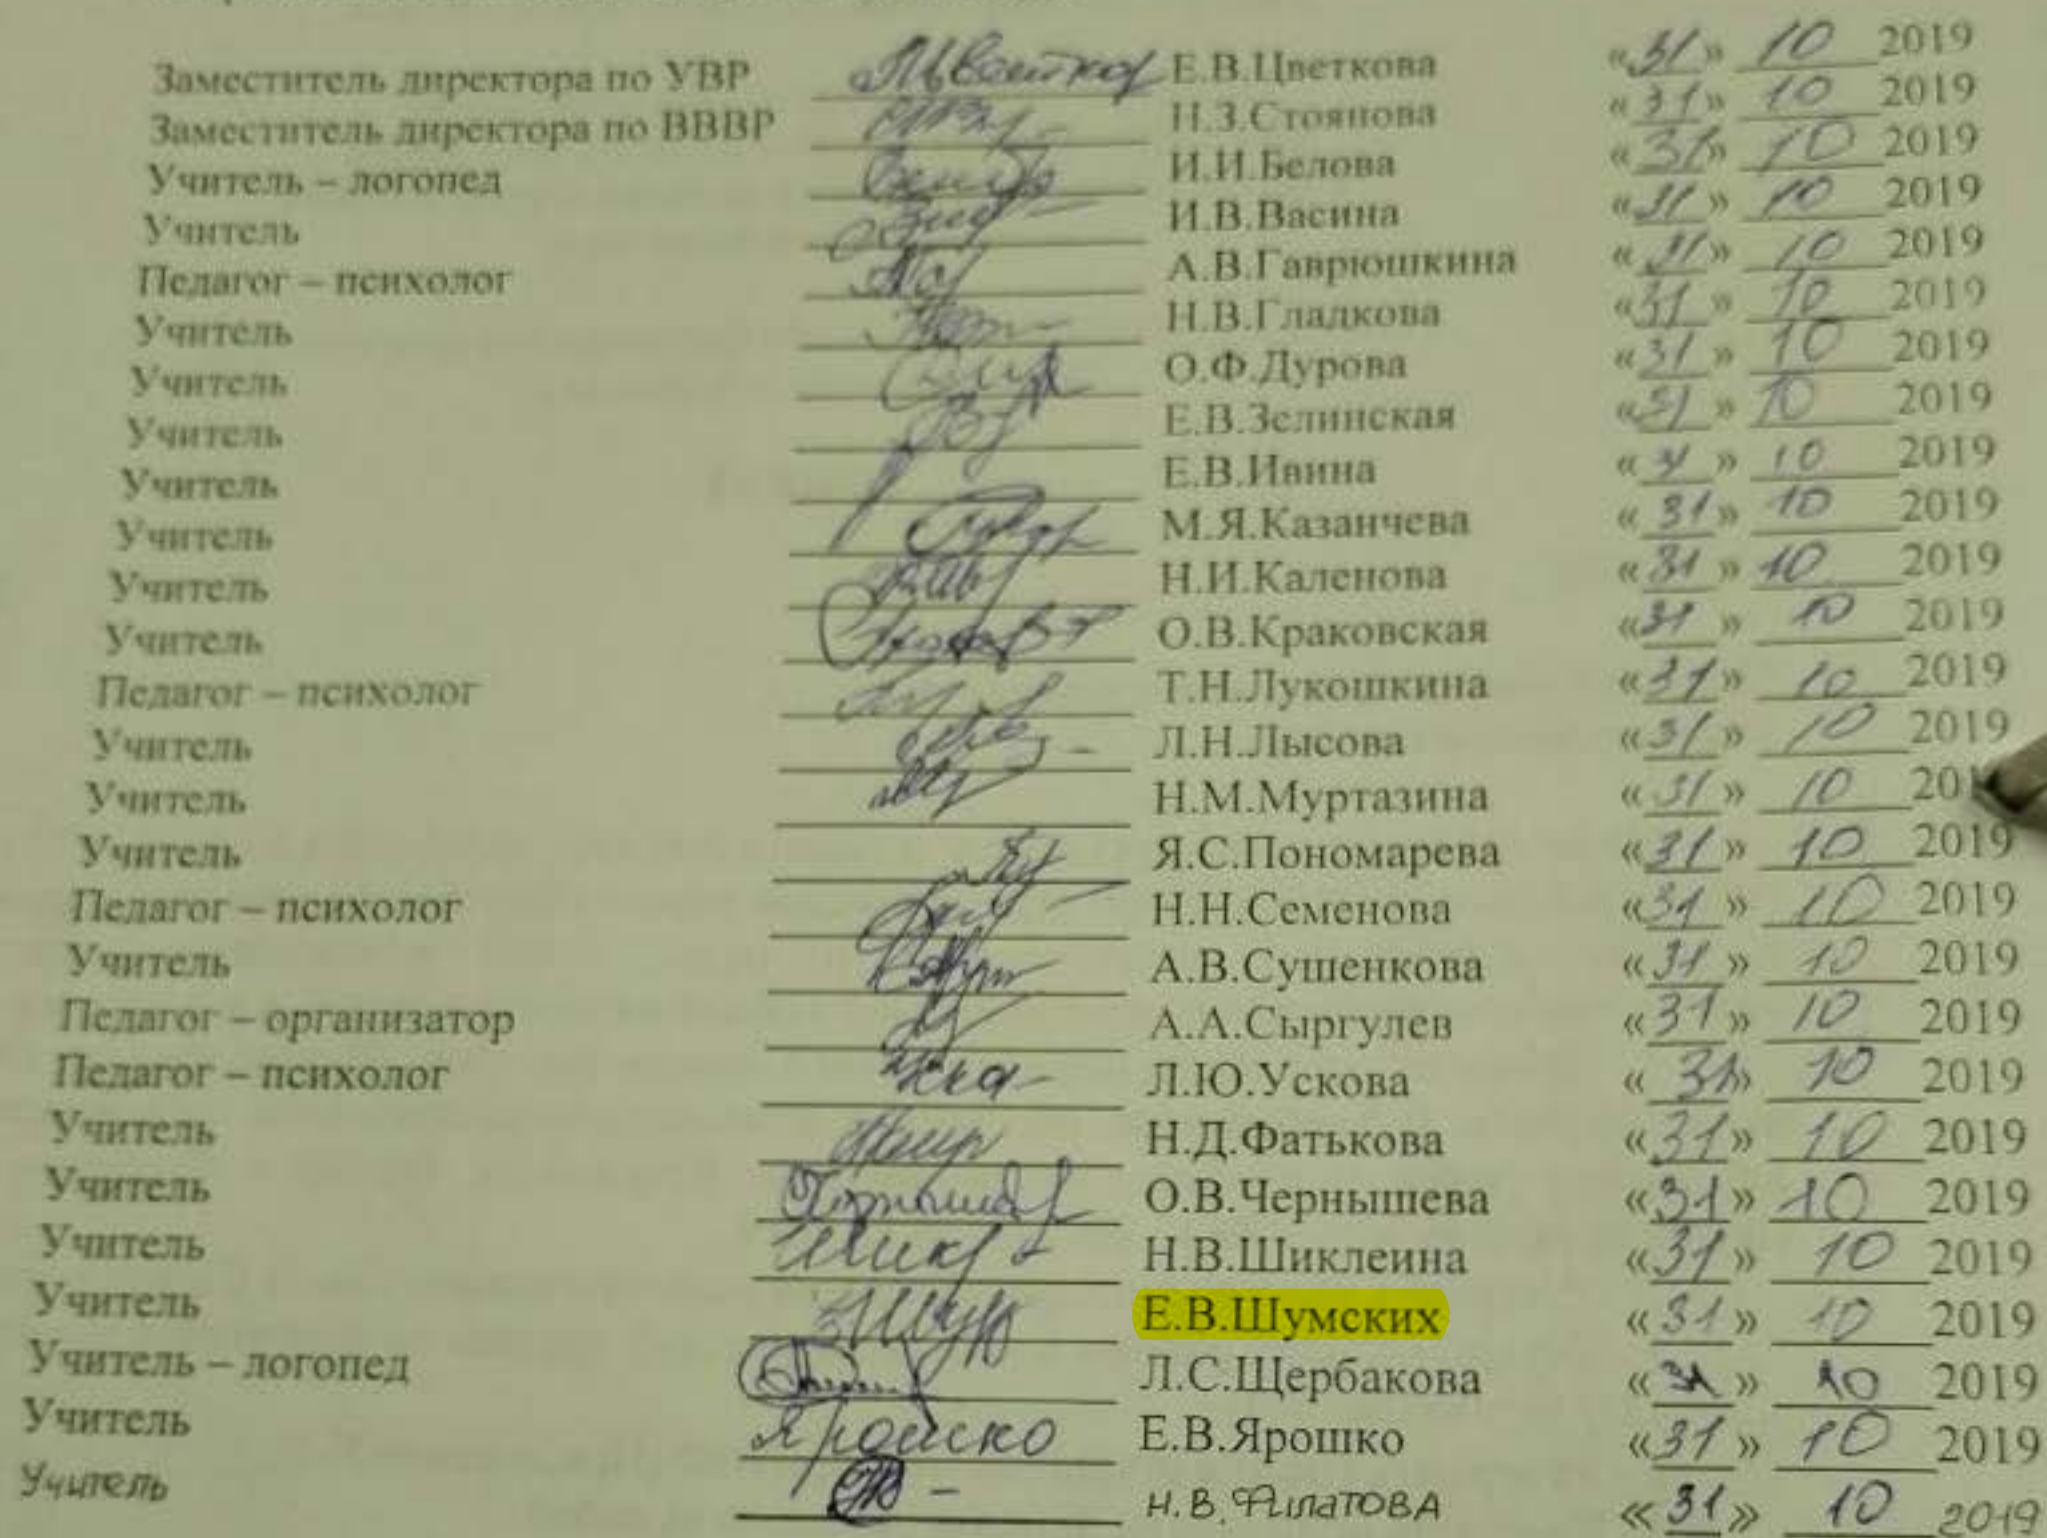 Заместитель директора по УВР Е.В.Цветкова «31» 10 2019
Заместитель директора по ВВВР Н.З.Стоянова «31» 10 2019
Учитель – логопед И.И.Белова «31» 10 2019
Учитель И.В.Васина «31» 10 2019
Педагог – психолог А.В.Гаврюшкина «31» 10 2019
Учитель Н.В.Гладкова «31» 10 2019
Учитель О.Ф.Дурова «31» 10 2019
Учитель Е.В.Зелинская «31» 10 2019
Учитель Е.В.Ивина «31» 10 2019
Учитель М.Я.Казанчева «31» 10 2019
Учитель Н.И.Каленова «31» 10 2019
Учитель О.В.Краковская «31» 10 2019
Педагог – психолог Т.Н.Лукошкина «31» 10 2019
Учитель Л.Н.Лысова «31» 10 2019
Учитель Н.М.Муртазина «31» 10 201
Учитель Я.С.Пономарева «31» 10 2019
Педагог – психолог Н.Н.Семенова «31» 10 2019
Учитель А.В.Сушенкова «31» 10 2019
Педагог – организатор А.А.Сыргулев «31» 10 2019
Педагог – психолог Л.Ю.Ускова «31» 10 2019
Учитель Н.Д.Фатькова «31» 10 2019
Учитель О.В.Чернышева «31» 10 2019
Учитель Н.В.Шиклеина «31» 10 2019
Учитель Е.В.Шумских «31» 10 2019
Учитель – логопед Л.С.Щербакова «31» 10 2019
Учитель Ярошко Е.В.Ярошко «31» 10 2019
Учитель Н.В.Филатова «31» 10 2019